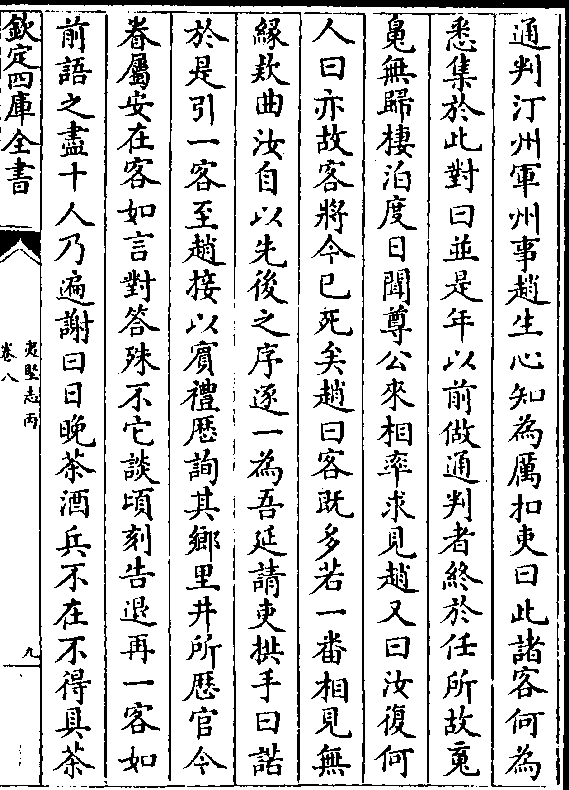 通判汀州軍州事趙生心知為厲扣吏曰此諸客何為
悉集於此對曰並是年以前做通判者終於任所故䰟
鬼無歸棲泊度日聞尊公來相率求見趙又曰汝復何
人曰亦故客將今已死矣趙曰客既多若一番相見無
緣欵曲汝自以先後之序逐一為吾延請吏拱手曰諾
於是引一客至趙接以賔禮歴詢其鄉里并所歴官今
眷屬安在客如言對答殊不它談頃刻告退再一客如
前語之盡十人乃遍謝曰日晚茶酒兵不在不得具茶
欽定四庫全書
夷堅志丙
卷八
九